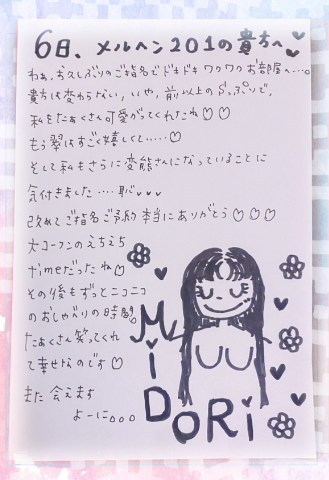 6日、メルヘン201の貴方へ
わぁ、お久しぶりのご指名でドキドキワクワクお部屋へ…。
貴方は変わらない、いや、前以上のSっぷりで、
私をたぁくさん可愛がってくれたね♡♡
もう翠はすごく嬉しくて……♡
そして私もさらに変態さんになっていることに
気付きました….恥♥♥♥
改めてご指名ご予約本当にありがとう♡♡♡
大コーフンのえちえち
timeだったね♡
その後もずっとニコニコ
のおしゃべりの時間。
たぁくさん笑ってくれ
て幸せなのです♡
また会えます
よーに。。。
MiDORi